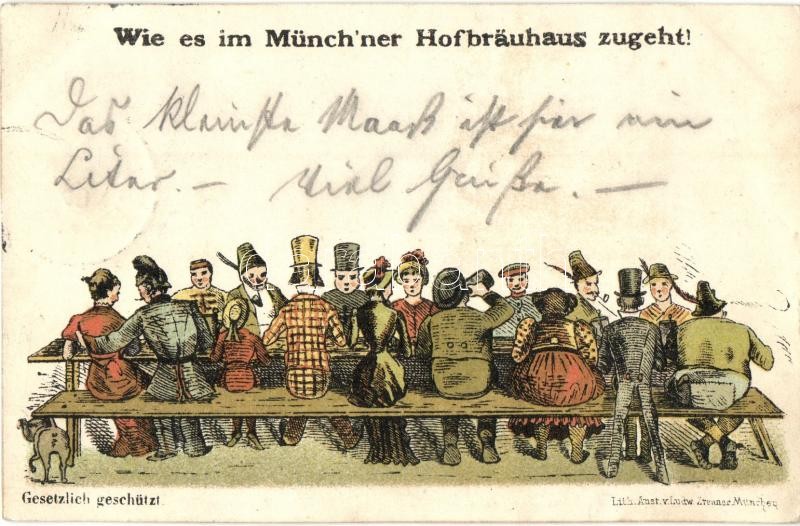 Wie es im Münch'ner Hofbräuhaus zugeht!
Das kleinste Maaß ist hier ein
Liter. — Viel Grüße. —
Gesetzlich geschützt.
Lith. Anst. v. Ludw. Zrenner München